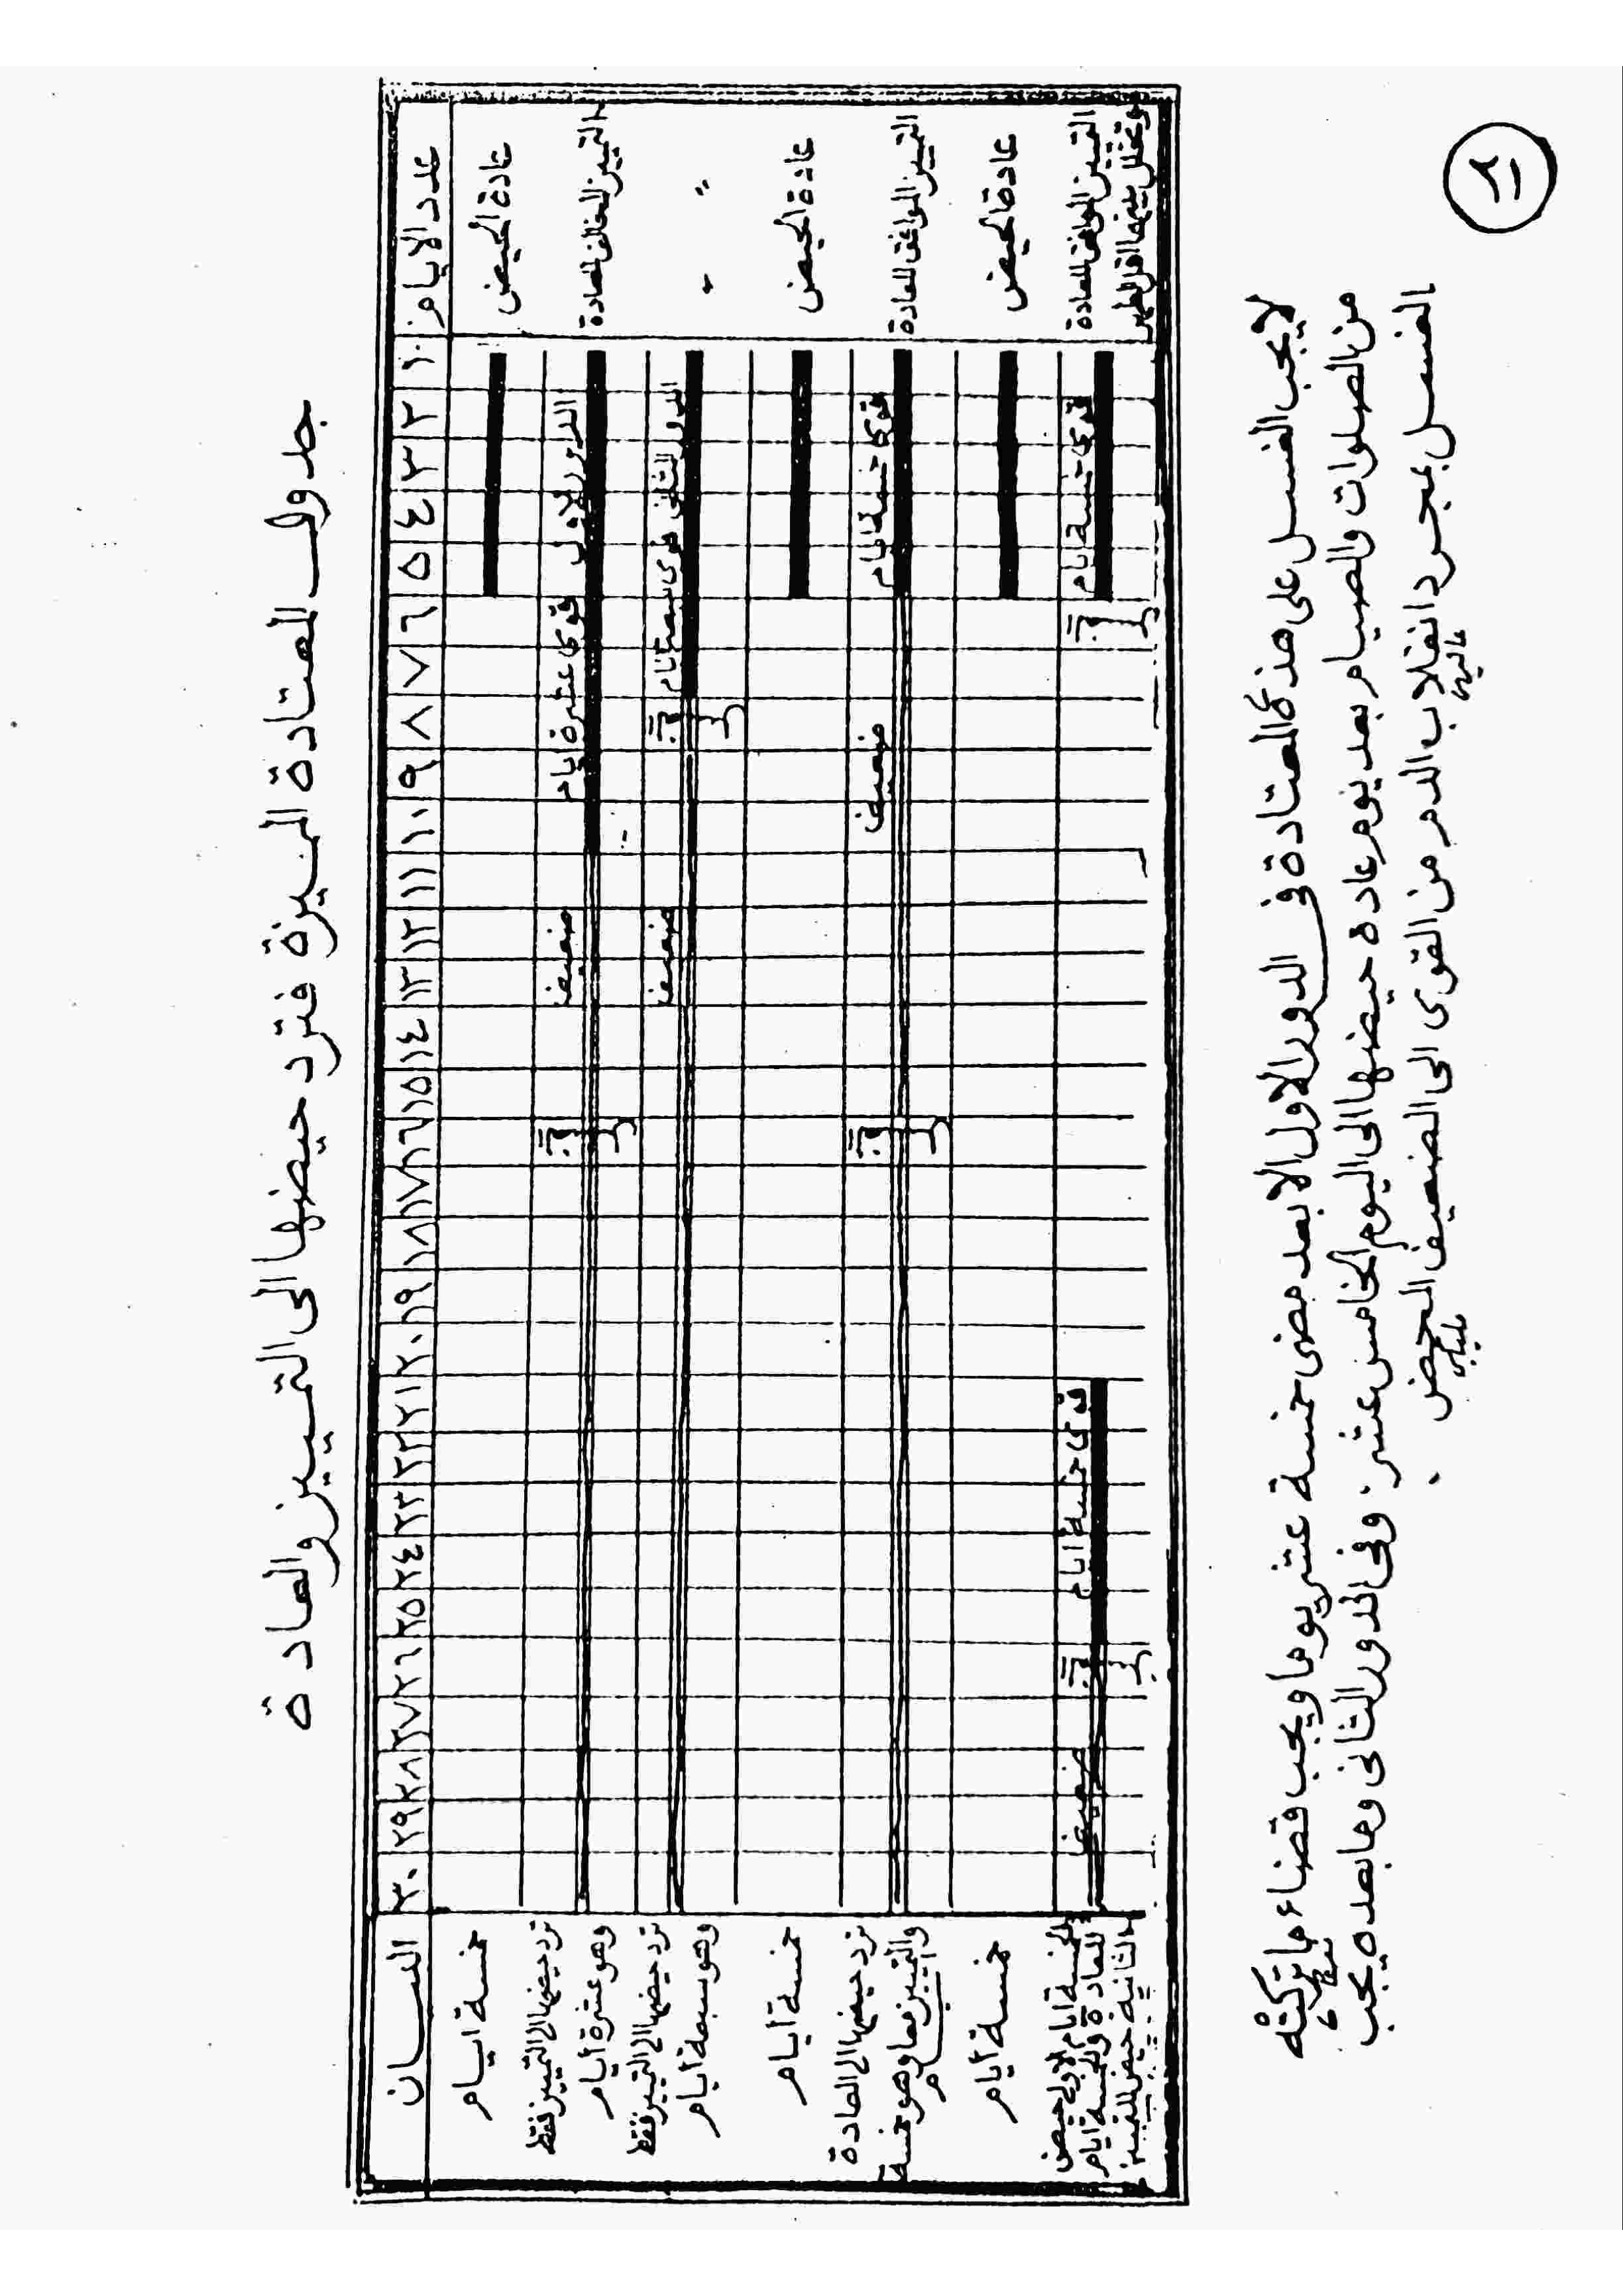 جدول المعتادة المميزة فترد حيضها الى التمييز والعادة
عدد الايام ١ ٢ ٣ ٤ ٥ ٦ ٧ ٨ ٩ ١٠ ١١ ١٢ ١٣ ١٤ ١٥ ١٦ ١٧ ١٨ ١٩ ٢٠ ٢١ ٢٢ ٢٣ ٢٤ ٢٥ ٢٦ ٢٧ ٢٨ ٢٩ ٣٠ البيان
عادة الحيض خمسة ايام
التمييز المخالف للعادة الدور الاول قوى عشرة ايام ضعيف ترد حيضها الى التمييز فقط
وهو عشرة أيام
〃 〃 الدور الثانى قوى سبعة ايام ضعيف ترد حيضها الى التمييز فقط
وهو سبعة أيام
عادة الحيض خمسة أيام
التمييز الموافق للعادة قوى خمسة ايام ضعيف ترد حيضها الى العادة
والتمييز معا وهو خمسة
عادة الحيض خمسة أيام
التمييز الموافق للعادة قوى خمسة ايام قوى خمسة ايام ضعيف الخمسة ايام الاولى حيض
وتخلل بينهما اقل الطهر للعادة والخمسة ايام
الثانية حيض للتمييز
لا يجب الغسل على هذه المعتادة فى الدور الاول الا بعد مضى خمسة عشر يوما ويجب قضاء ما تركته
من الصلوات والصيام بعد يوم عادة حيضها الى اليوم الخامس عشر . وفى الدور الثانى وما بعده يجب
الغسل بمجرد انقلاب الدم من القوى الى الضعيف المحض .
٢